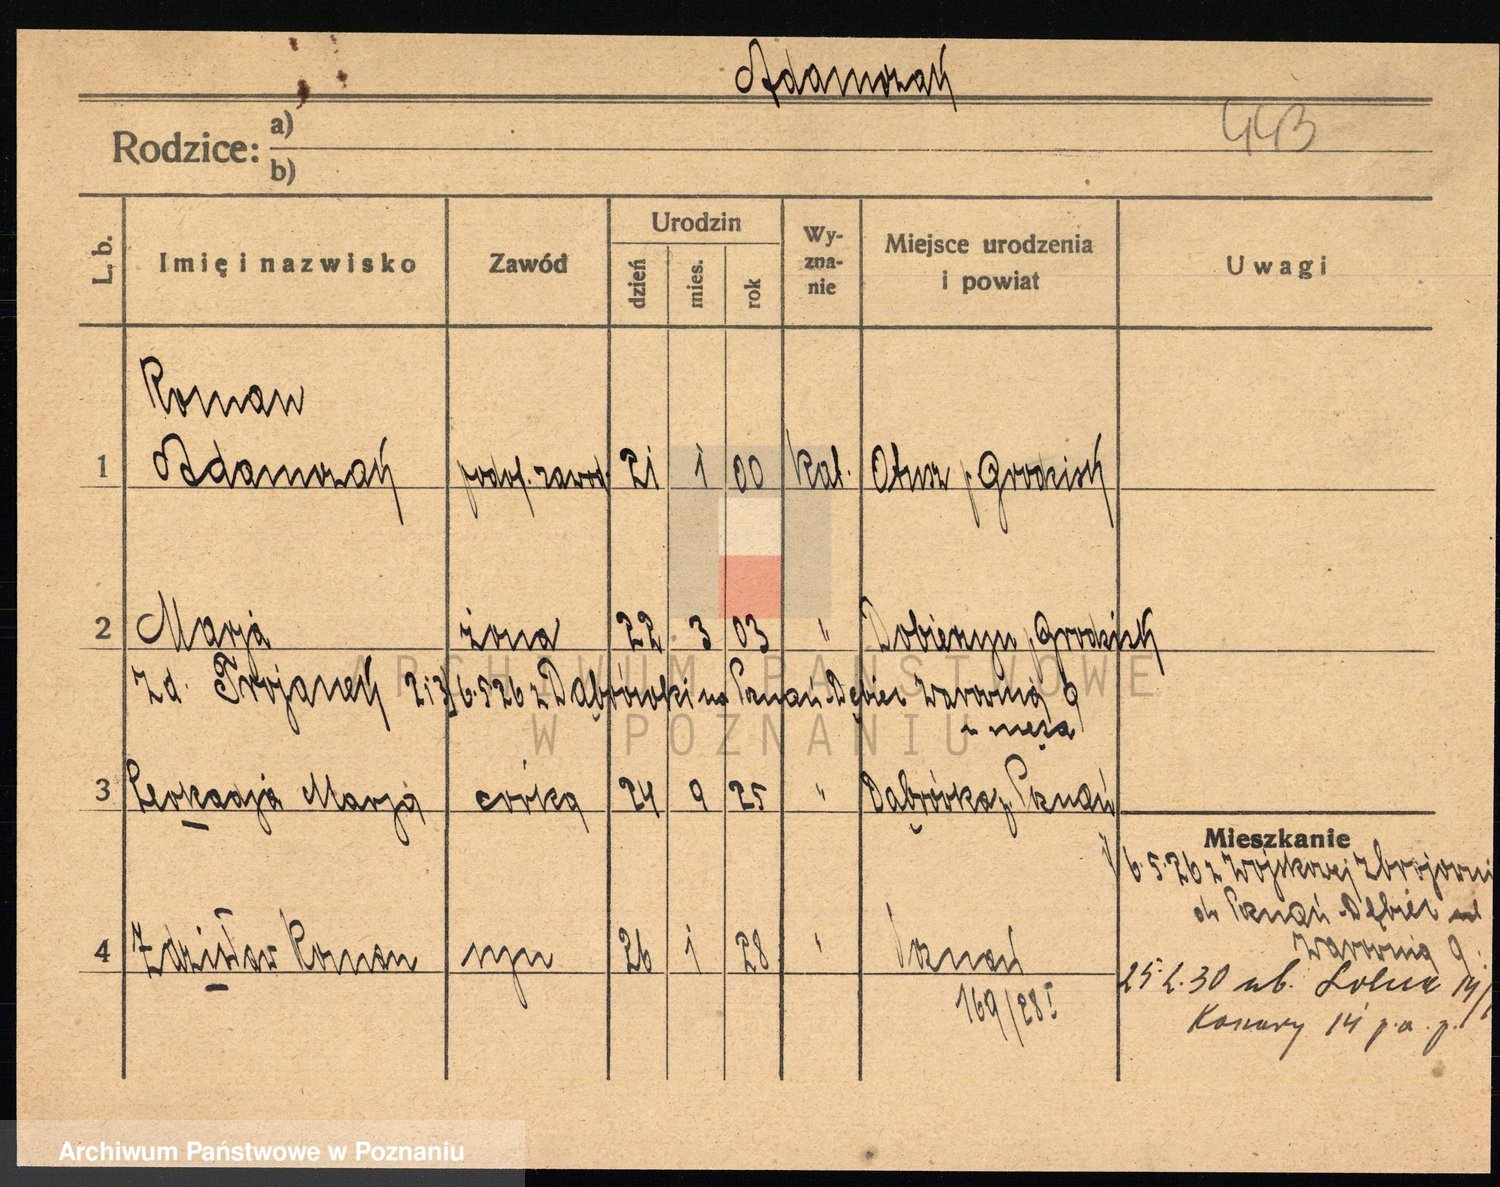 Adamczak
443
Rodzice: a)
b)
L. b. Imię i nazwisko Zawód Urodzin dzień mies. rok Wy-zna-nie Miejsce urodzenia i powiat Uwagi
Roman
1 Adamczak podof. zawod. 21 1 00 kat. Otusz p Grodzisk
2 Marja żona 22 3 03 " Dobieżyn p Grodzisk
zd. Trojanek 2 i 3/6.5.26 z Dąbrówki na Poznań-Dębiec Warownia 9
męża
3 Leokadja Marja córka 24 9 25 " Dąbrówka p. Poznań
Mieszkanie
1/6.5.26 z Wojskowej Zbrojowni
Poznań Dębiec
Warownia 9.
4 Zdzisław Roman syn 26 1 28 " Poznań
169/28 I
25.2.30 ul. Solna
Koszary 14 p.a.p.
ARCHIWUM PAŃSTWOWE
W POZNANIU
Archiwum Państwowe w Poznaniu